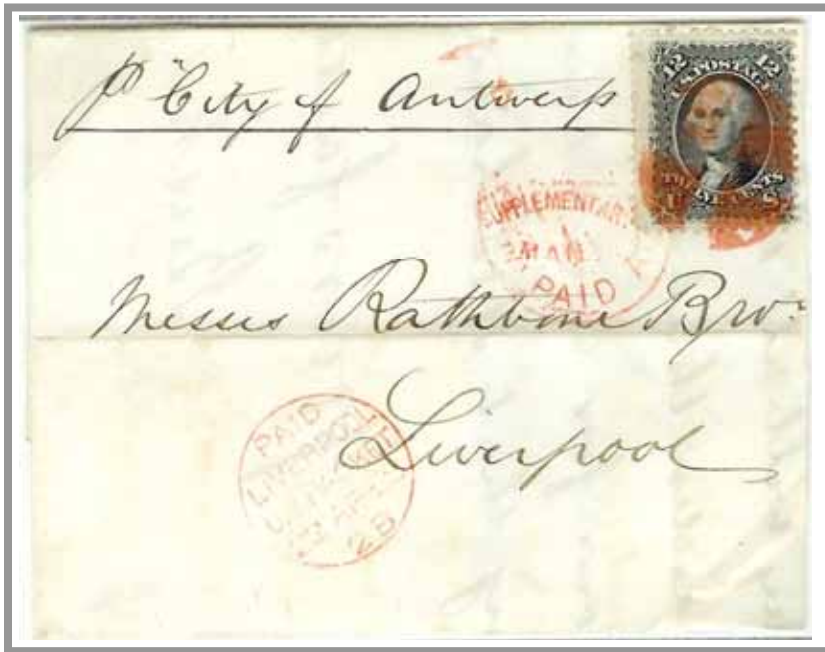 pr "City of Antwerp
12 12
U.S. POSTAGE
TWELVE CENTS
U S
SUPPLEMENTARY
MAIL
PAID
Messrs Rathbone Bros
Liverpool
PAID
LIVERPOOL
U.S. PACKET
AP
2B